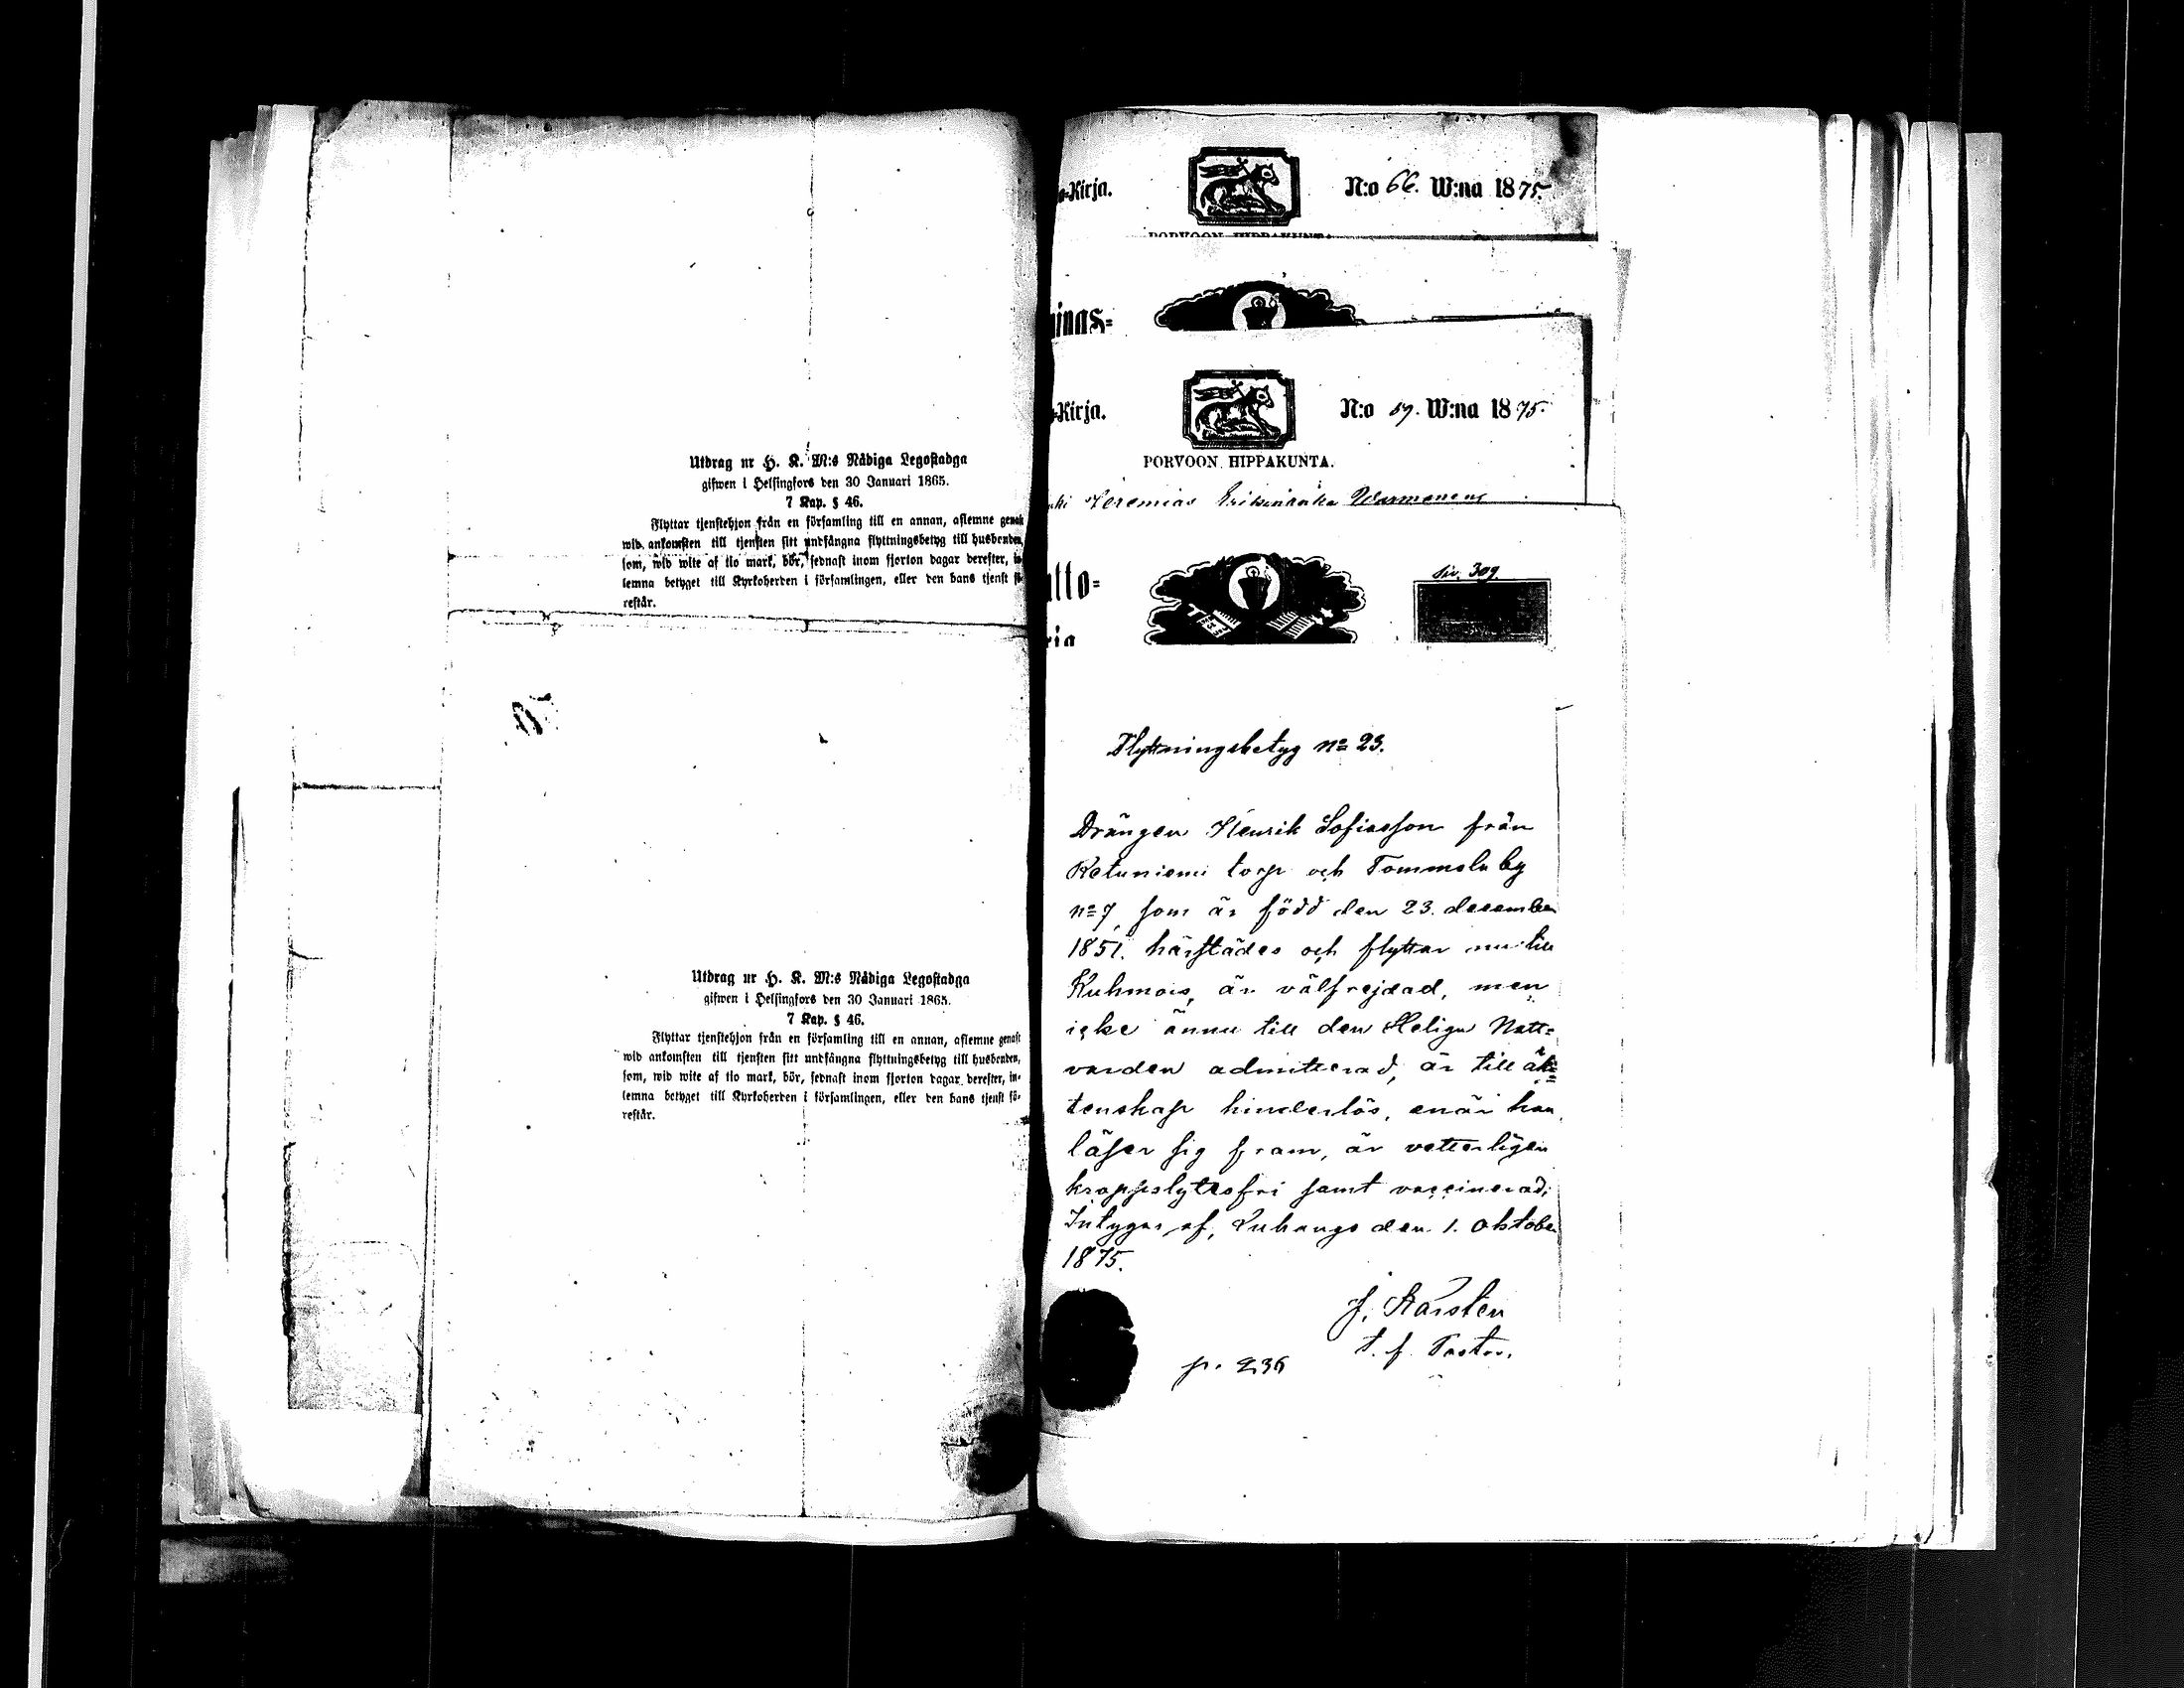 Utdrag ur H. K. M:s Nådiga Legostadga
gifwen i Helsingfors den 30 Januari 1865.
7 Kap. § 46.
Flyttar tjenstehjon från en församling till en annan, aflemne genast
wid ankomsten till tjensten sitt undfångna flyttningsbetyg till husbonden,
som, wid wite af tio mark, bör, sednast inom fjorton dagar derefter, in-
lemna betyget till Kyrkoherden i församlingen, eller den hans tjenst fö-
restår.
Utdrag ur H. K. M:s Nådiga Legostadga
gifwen i Helsingfors den 30 Januari 1865.
7 Kap. § 46.
Flyttar tjenstehjon från en församling till en annan, aflemne genast
wid ankomsten till tjensten sitt undfångna flyttningsbetyg till husbonden,
som, wid wite af tio mark, bör, sednast inom fjorton dagar derefter, in-
lemna betyget till Kyrkoherden i församlingen, eller den hans tjenst fö-
restår.
o-Kirja. N:o 66. W:na 1875.
PORVOON HIPPAKUNTA.
nings-
-Kirja. N:o 59. W:na 1875.
PORVOON HIPPAKUNTA.
Jeremias
utto- siv. 309
ria
Flyttningsbetyg no 23.
Drängen Henrik Sofiasson från
Ketuniemi torp och Tommola by
no 7, som är född den 23. desember
1851. härstädes och flyttar nu till
Kuhmois, är välfrejdad, men
icke ännu till den Heliga Natt-
varden admitterad, är till äk-
tenskap hinderlös, enär han
läser sig fram, är vetterligen
kroppslytesfri samt vaccinerad;
Intygar af, Luhango den 1. oktober
1875.
J. Karsten
t. f. Pastor.
p. 236